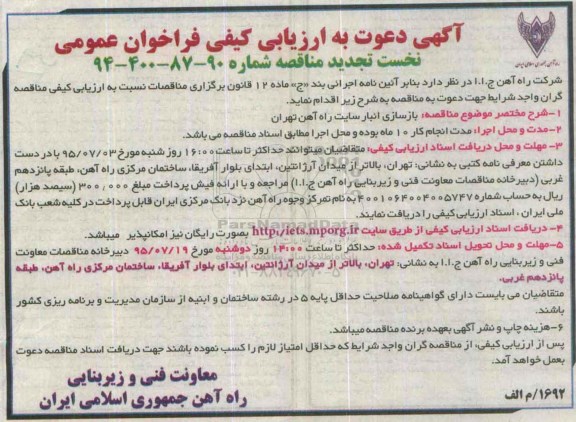 آگهی دعوت به ارزیابی کیفی فراخوان عمومی
نخست تجدید مناقصه شماره ۹۰-۸۷-۴۰۰-۹۴
شرکت راه آهن ج.ا.ا در نظر دارد بنابر آئین نامه اجرائی بند «ج» ماده ۱۲ قانون برگزاری مناقصات نسبت به ارزیابی کیفی مناقصه
گران واجد شرایط جهت دعوت به مناقصه به شرح زیر اقدام نماید.
۱-شرح مختصر موضوع مناقصه: بازسازی انبار سایت راه آهن تهران
۲-مدت و محل اجرا: مدت انجام کار ۱۰ ماه بوده و محل اجرا مطابق اسناد مناقصه می باشد.
۳- مهلت و محل دریافت اسناد ارزیابی کیفی: متقاضیان میتوانند حداکثر تا ساعت ۱۶:۰۰ روز شنبه مورخ ۹۵/۰۷/۰۳ با در دست
داشتن معرفی نامه کتبی به نشانی: تهران، بالاتر از میدان آرژانتین، ابتدای بلوار آفریقا، ساختمان مرکزی راه آهن، طبقه پانزدهم
غربی (دبیرخانه مناقصات معاونت فنی و زیربنایی راه آهن ج.ا.ا) مراجعه و با ارائه فیش پرداخت مبلغ ۳۰۰,۰۰۰ (سیصد هزار)
ریال به حساب شماره ۴۰۰۱۰۶۴۰۰۴۰۰۵۷۴۷ به نام تمرکز وجوه راه آهن نزد بانک مرکزی ایران قابل پرداخت در کلیه شعب بانک
ملی ایران ، اسناد ارزیابی کیفی را دریافت نمایند.
۴- دریافت اسناد ارزیابی کیفی از طریق سایت http://iets.mporg.ir بصورت رایگان نیز امکانپذیر میباشد.
۵-مهلت و محل تحویل اسناد تکمیل شده: حداکثر تا ساعت ۱۴:۰۰ روز دوشنبه مورخ ۹۵/۰۷/۱۹ دبیرخانه مناقصات معاونت
فنی و زیربنایی راه آهن ج.ا.ا به نشانی: تهران، بالاتر از میدان آرژانتین، ابتدای بلوار آفریقا، ساختمان مرکزی راه آهن، طبقه
پانزدهم غربی.
متقاضیان می بایست دارای گواهینامه صلاحیت حداقل پایه ۵ در رشته ساختمان و ابنیه از سازمان مدیریت و برنامه ریزی کشور
باشند.
۶-هزینه چاپ و نشر آگهی بعهده برنده مناقصه میباشد.
پس از ارزیابی کیفی، از مناقصه گران واجد شرایط که حداقل امتیاز لازم را کسب نموده باشند جهت دریافت اسناد مناقصه دعوت
بعمل خواهد آمد.
معاونت فنی و زیربنایی
راه آهن جمهوری اسلامی ایران
۱۶۹۲/م الف